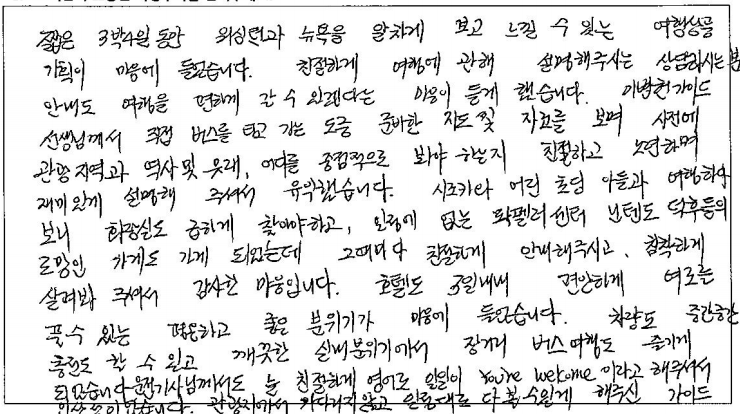 짧은 3박4일 동안 워싱턴과 뉴욕을 알차게 보고 느낄 수 있는 여행상품
기획이 마음에 들었습니다. 친절하게 여행에 관해 설명해주시는 상담하시는 분
안내도 여행을 편하게 갈 수 있겠다는 마음이 들게 했습니다. 가이드
선생님께서 직접 버스를 타고 가는 도중 준비한 지도 및 자료를 보며 사전에
관광지역과 역사 및 유래, 어디를 중점적으로 봐야 하는지 친절하고 노련하며
재미있게 설명해 주셔서 유익했습니다. 시조카와 어린 초딩 아들과 여행하다
보니 화장실도 급하게 찾아야하고, 일정에 없는 락펠러센터 닌텐도 덕후들의
로망인 가게도 가게 되었는데 그때마다 친절하게 안내해주시고, 침착하게
살펴봐 주셔서 감사한 마음입니다. 호텔도 3일내내 편안하게 여로를
풀 수 있는 평온하고 좋은 분위기가 마음에 들었습니다. 차량도 중간중간
충전도 할 수 있고 깨끗한 실내분위기에서 장거리 버스여행도 즐기게
되었습니다 운전기사님께서도 늘 친절하게 영어로 일일이 You're welcome 이라고 해주셔서
관광지에서 기다리지않고 일정대로 다 볼 수 있게 해주신 가이드